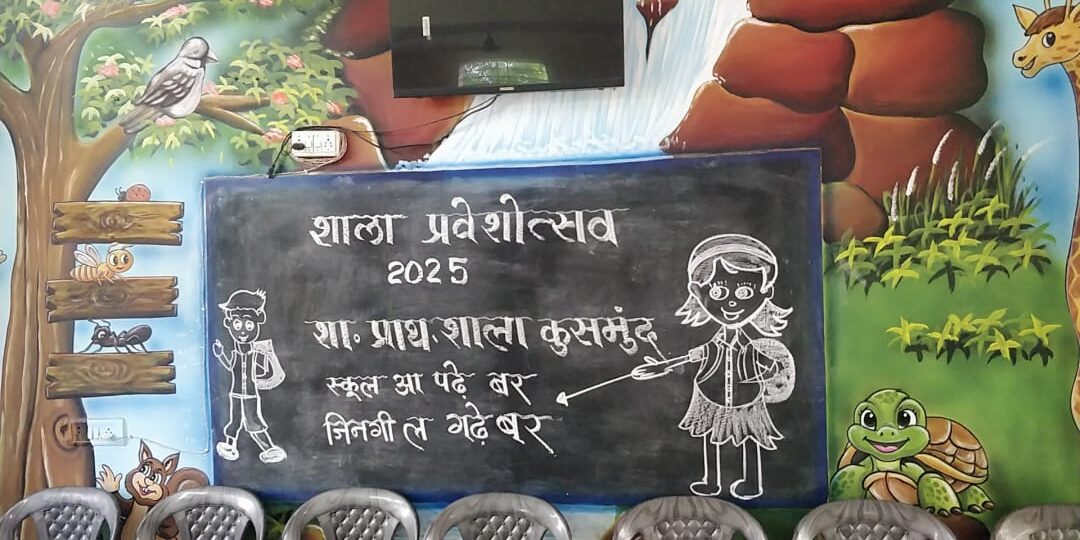 शाला प्रवेशोत्सव
2025
शा. प्राथ. शाला कुसमुंद
स्कूल आ पढ़े बर
जिनगी ल गढ़े बर